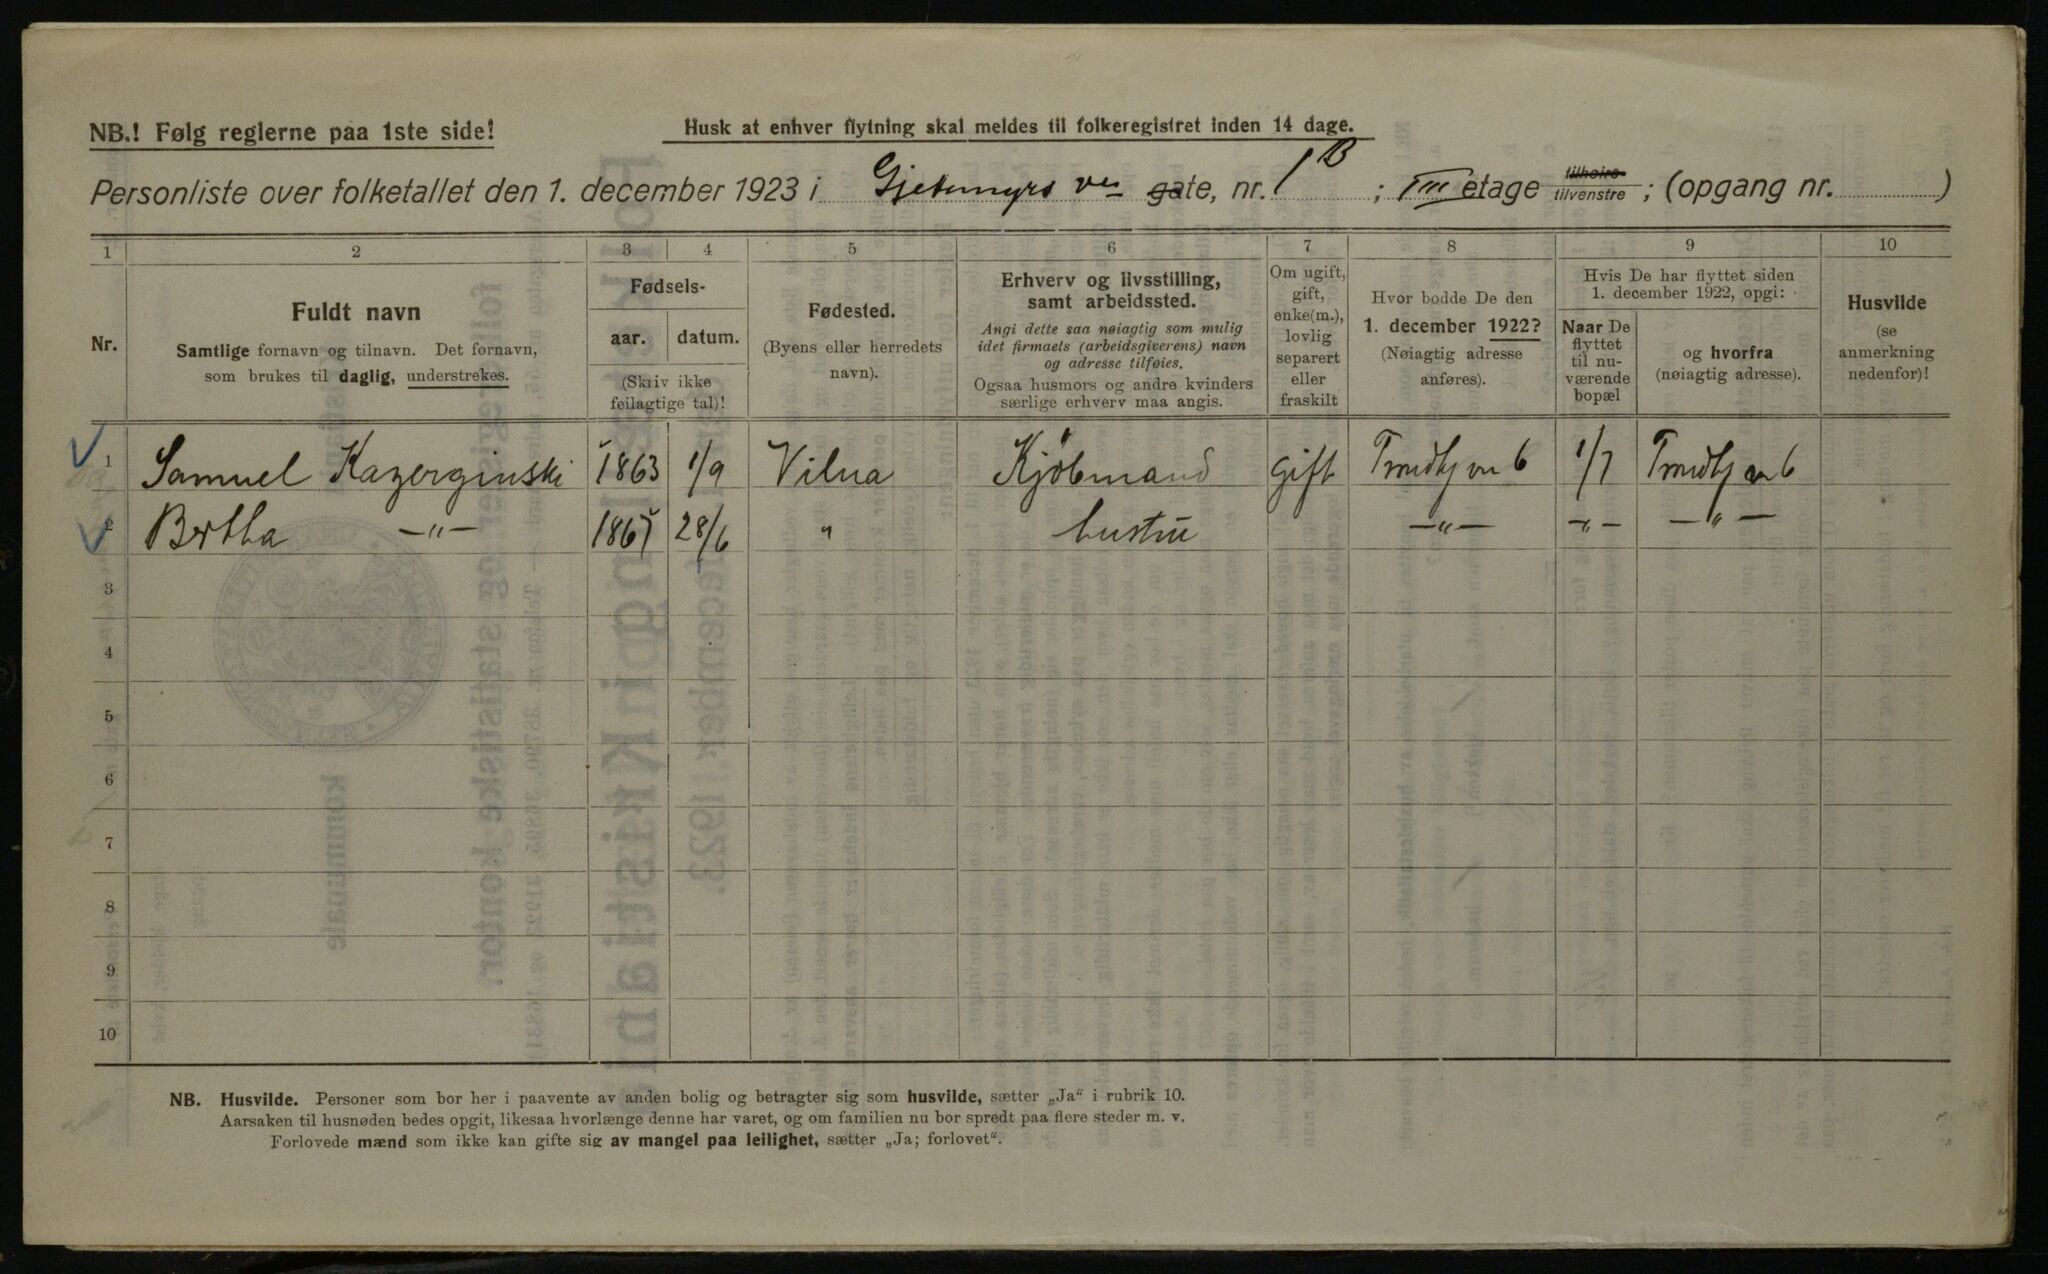 NB.! Følg reglerne paa 1ste side!
Husk at enhver flytning skal meldes til folkeregistret inden 14 dage.
Personliste over folketallet den 1. december 1923 i Gjetemyrs vei gate, nr. 1B ; III etage tilhøire tilvenstre ; (opgang nr. )
1 2 3 4 5 6 7 8 9 10
Nr.
Fuldt navn
Samtlige fornavn og tilnavn. Det fornavn,
som brukes til daglig, understrekes.
Fødsels-
aar. datum.
(Skriv ikke
feilagtige tal)!
Fødested.
(Byens eller herredets
navn).
Erhverv og livsstilling,
samt arbeidssted.
Angi dette saa nøiagtig som mulig
idet firmaets (arbeidsgiverens) navn
og adresse tilføies.
Ogsaa husmors og andre kvinders
særlige erhverv maa angis.
Om ugift,
gift,
enke(m.),
lovlig
separert
eller
fraskilt
Hvor bodde De den
1. december 1922?
(Nøiagtig adresse
anføres).
Hvis De har flyttet siden
1. december 1922, opgi:
Naar De
flyttet
til nu-
værende
bopæl
og hvorfra
(nøiagtig adresse).
Husvilde
(se
anmerkning
nedenfor)!
1 Samuel Kazerginski 1863 1/9 Vilna Kjøbmand gift Trondhj vn 6 1/7 Trondhj vn 6
2 Bertha —"— 28/6 " hustru —"— —"— —"—
3
4
5
6
7
8
9
10
NB. Husvilde. Personer som bor her i paavente av anden bolig og betragter sig som husvilde, sætter „Ja“ i rubrik 10.
Aarsaken til husnøden bedes opgit, likesaa hvorlænge denne har varet, og om familien nu bor spredt paa flere steder m. v.
Forlovede mænd som ikke kan gifte sig av mangel paa leilighet, sætter „Ja; forlovet“.